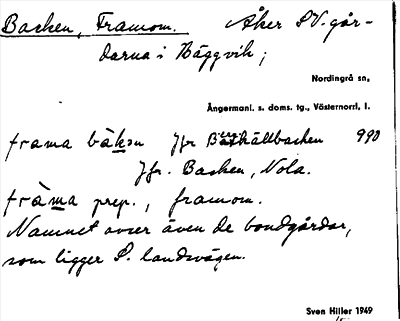 Backen, Framom. Åker SV. går-
darna i Häggvik;
Nordingrå sn,
Ångermanl. s. doms. tg., Västernorrl. l.
frama bàkən Jfr Båtkällbacken 990
Jfr. Backen, Nola.
fràma prep., framom.
Namnet avser även de bondgårdar,
som ligger S. landsvägen.
Sven Hiller 1949